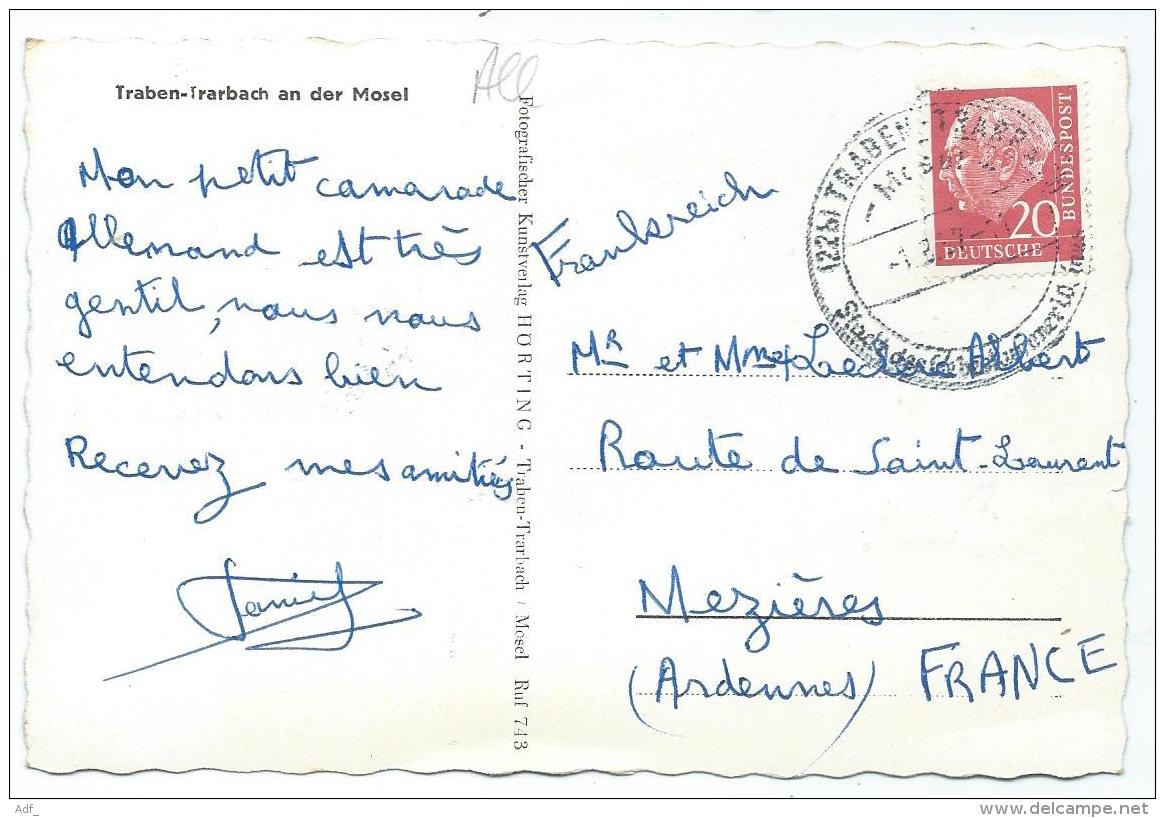 Traben-Trarbach an der Mosel
All
Mon petit camarade
Allemand est très
gentil, nous nous
entendons bien
Recevez mes amitiés
Daniel
Fotografischer Kunstverlag HÖRTING - Traben-Trarbach / Mosel Ruf 743
Frankreich
(22b) TRABEN-TRARB
20
DEUTSCHE
BUNDESPOST
Mr et Mme Leclerc Albert
Route de Saint-Laurent
Mezières
(Ardennes) FRANCE
Adf_
www.delcampe.net